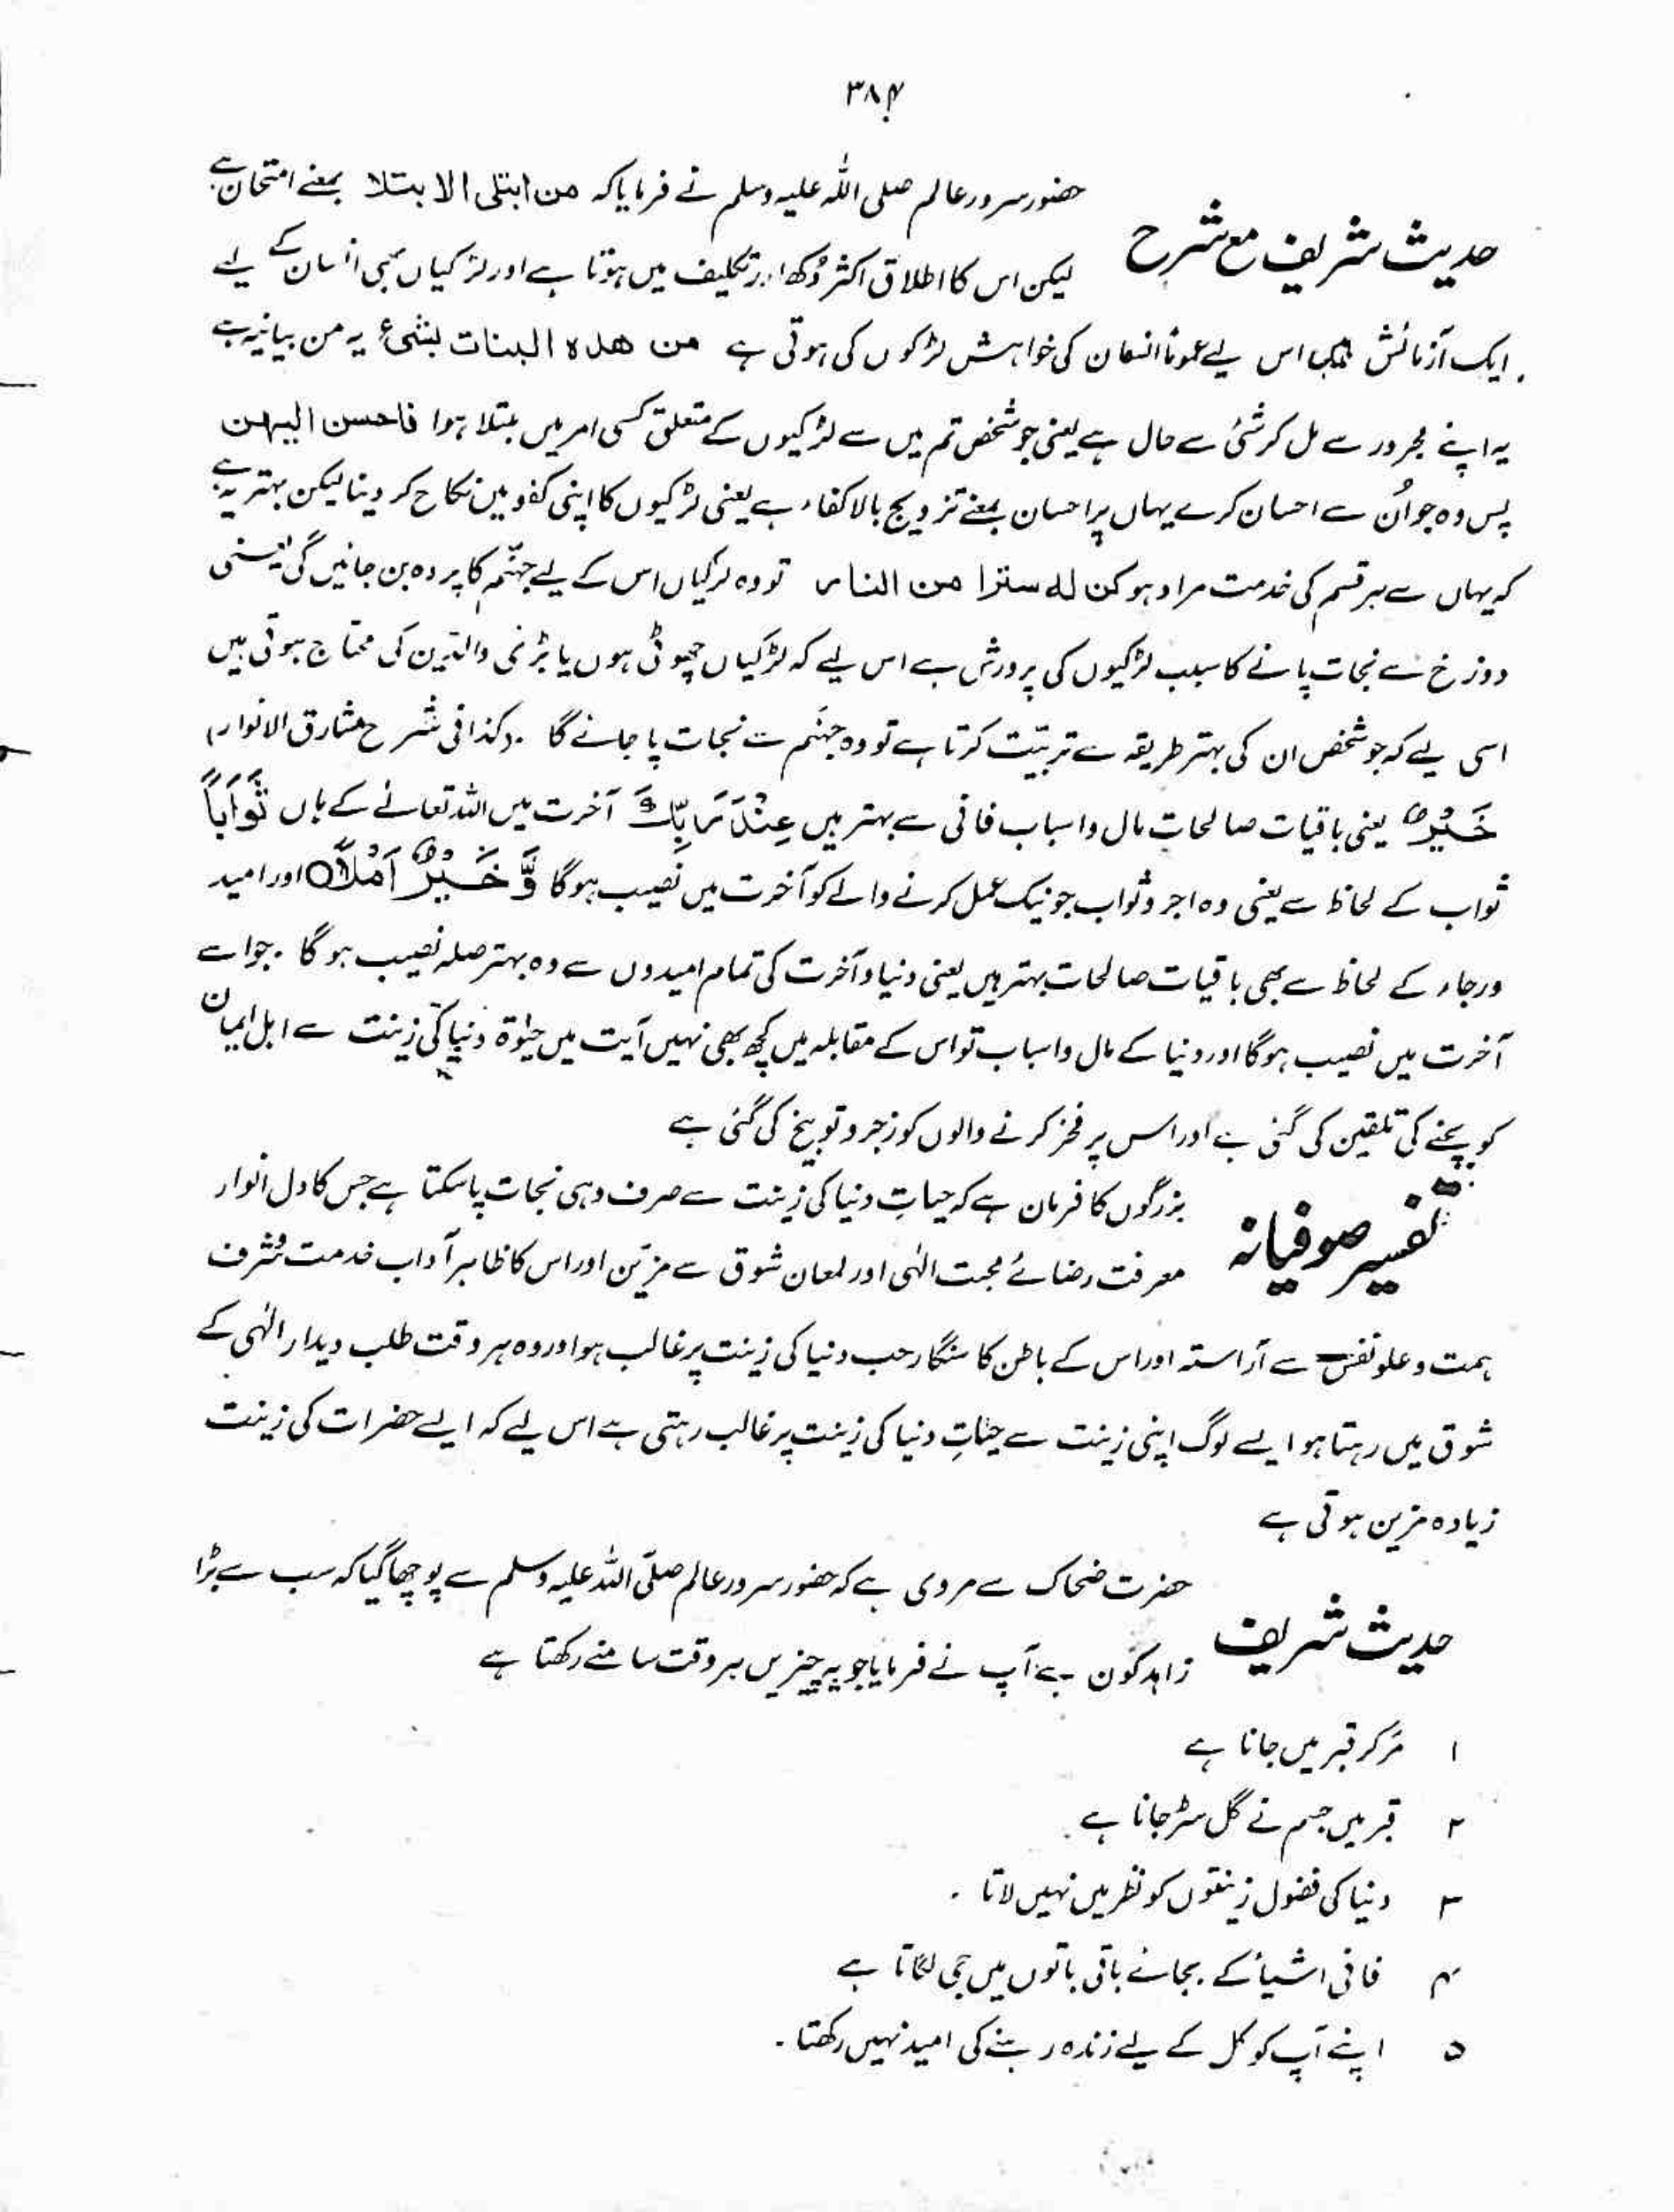 ۳۸۴
حدیث شریف مع شرح
حضور سرور عالم صلی اللہ علیہ وسلم نے فرمایا کہ من ابتلی الا بتلا بمعنے امتحان ہے
لیکن اس کا اطلاق اکثر دُکھ اور تکلیف میں ہوتا ہے اور لڑکیاں بھی انسان کے لیے
ایک آزمائش ہیں اس لیے عموماً انسان کی خواہش لڑکوں کی ہوتی ہے من هذه البنات بشیٔ یہ من بیانیہ ہے
یہ اپنے مجرور سے مل کر شیٔ سے حال ہے یعنی جو شخص تم میں سے لڑکیوں کے متعلق کسی امر میں مبتلا ہوا فاحسن الیهن
پس وہ جو اُن سے احسان کرے یہاں پر احسان بمعنے تزویج بالاکفاء ہے یعنی لڑکیوں کا اپنی کفو میں نکاح کر دینا لیکن بہتر یہ ہے
کہ یہاں سے ہر قسم کی خدمت مراد ہو کن له سترا من النار تو وہ لڑکیاں اس کے لیے جہنّم کا پردہ بن جائیں گی یعنی
دوزخ سے نجات پانے کا سبب لڑکیوں کی پرورش ہے اس لیے کہ لڑکیاں چھوٹی ہوں یا بڑی والدین کی محتاج ہوتی ہیں
اسی لیے کہ جو شخص ان کی بہتر طریقہ سے تربیّت کرتا ہے تو وہ جہنّم سے نجات پا جائے گا ۔ (کذا فی شرح مشارق الانوار)
خَيْرٌ یعنی باقیات صالحات مال و اسباب فانی سے بہتر ہیں عِنْدَ رَبِّكَ آخرت میں اللہ تعالےٰ کے ہاں ثَوَاباً
ثواب کے لحاظ سے یعنی وہ اجر و ثواب جو نیک عمل کرنے والے کو آخرت میں نصیب ہوگا وَّ خَيْرٌ اَمَلًا○ اور امید
ورجاء کے لحاظ سے بھی باقیات صالحات بہتر ہیں یعنی دنیا و آخرت کی تمام امیدوں سے وہ بہتر صلہ نصیب ہو گا ۔ جو اسے
آخرت میں نصیب ہوگا اور دنیا کے مال و اسباب تو اس کے مقابلہ میں کچھ بھی نہیں آیت میں حیٰوۃ دنیا کی زینت سے اہل ایمان
کو بچنے کی تلقین کی گئی ہے اور اس پر فخر کرنے والوں کو زجر و توبیخ کی گئی ہے
تفسیر صوفیانہ
بزرگوں کا فرمان ہے کہ حیاتِ دنیا کی زینت سے صرف وہی نجات پا سکتا ہے جس کا دل انوار
معرفت رضائے محبت الٰہی اور لمعان شوق سے مزیّن اور اس کا ظاہر آداب خدمت و شرف
ہمت و علو نفس سے آراستہ اور اس کے باطن کا سنگار حب دنیا کی زینت پر غالب ہو اور وہ ہر وقت طلب دیدار الٰہی کے
شوق میں رہتا ہو ایسے لوگ اپنی زینت سے حیٰاتِ دنیا کی زینت پر غالب رہتی ہے اس لیے کہ ایسے حضرات کی زینت
زیادہ مزین ہوتی ہے
حدیث شریف
حضرت ضحاک سے مروی ہے کہ حضور سرور عالم صلّی اللہ علیہ وسلم سے پوچھا گیا کہ سب سے بڑا
زاہد کون ہے آپ نے فرمایا جو یہ چیزیں ہر وقت سامنے رکھتا ہے
۱ مر کر قبر میں جانا ہے
۲ قبر میں جسم نے گل سڑ جانا ہے ۔
۳ دنیا کی فضول زینتوں کو نظر میں نہیں لاتا ۔
۴ فانی اشیأ کے بجائے باقی باتوں میں جی لگاتا ہے
۵ اپنے آپ کو کل کے لیے زندہ رہنے کی امید نہیں رکھتا ۔